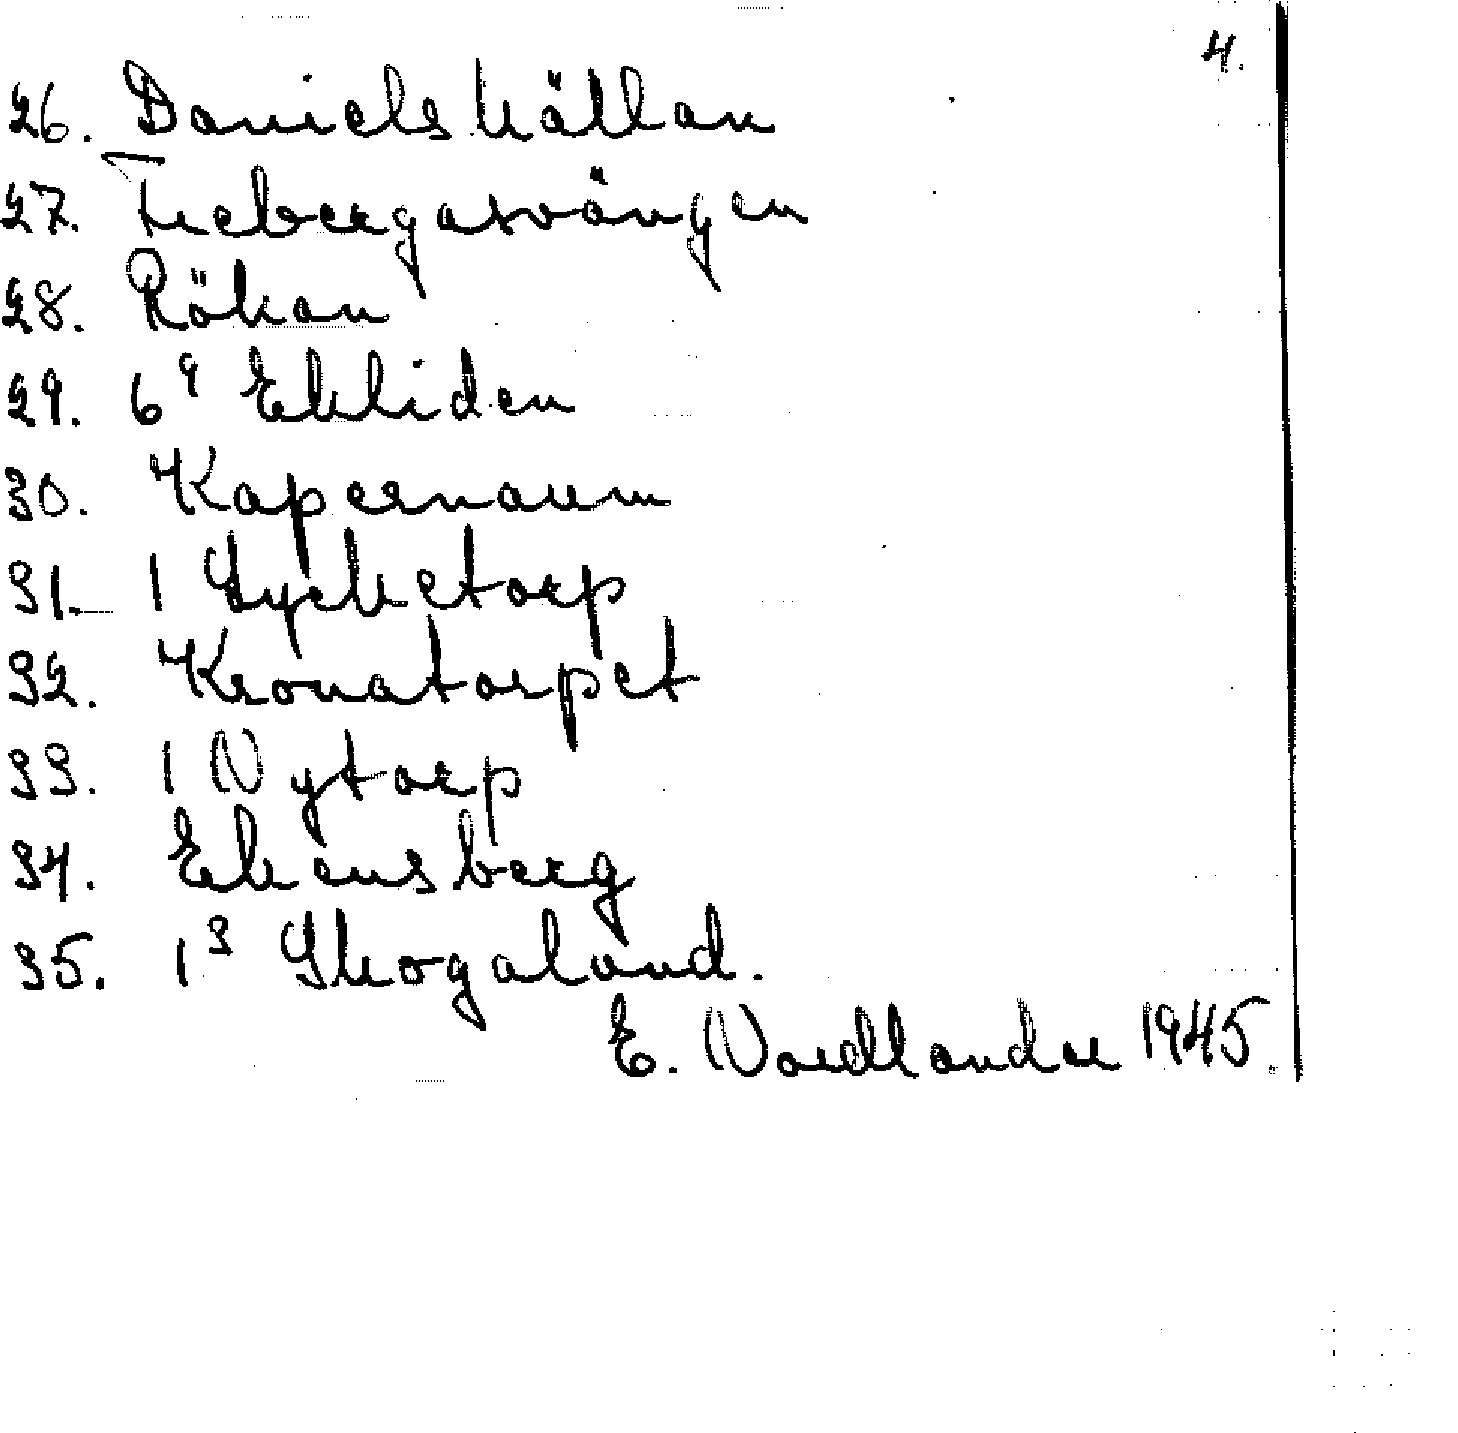 4.
26. Danielskällan
27. Trebergasvängen
28. Rökan
29. 6⁹ Ekliden
30. Kapernaum
31. 1 Lycketorp
32. Kronatorpet
33. 1 Nytorp
34. Ekensberg
35. 1³ Skogaland.
E. Nordlander 1945.